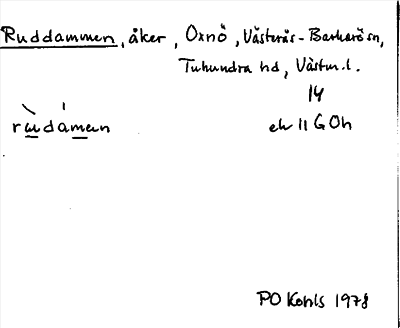 Ruddammen, åker, Oxnö, Västerås-Barkarö sn,
Tuhundra hd, Västm. l.
14
rudamen
ek 11 G Oh
PO Kohls 1978